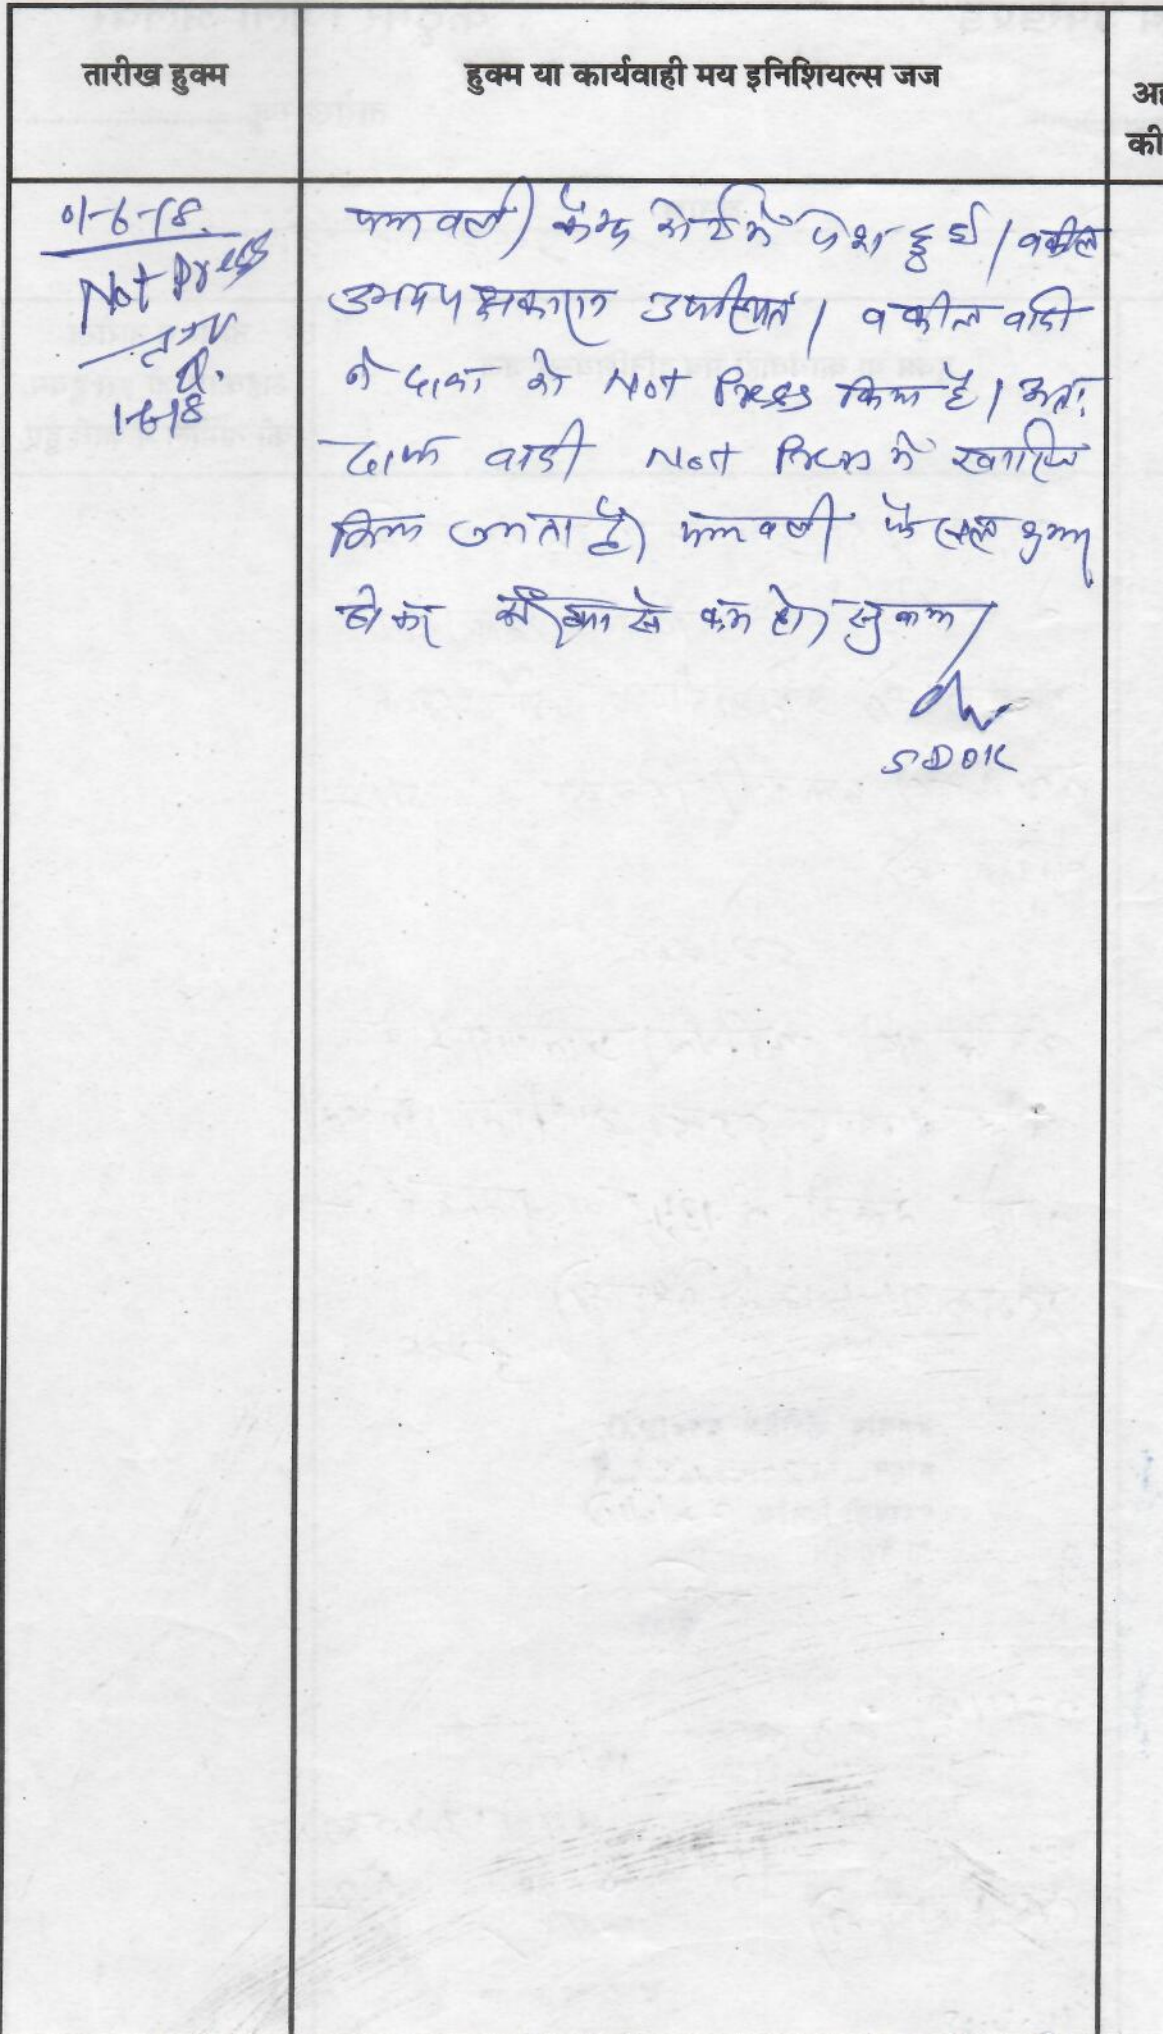 तारीख हुक्म
हुक्म या कार्यवाही मय इनिशियल्स जज
की
01-6-18.
Not Press
1-6-18
पत्रावली कैम्प कोर्ट में पेश हुई। वकील
उभयपक्षकारान उपस्थित। वकील वादी
ने दावा को Not Press किया है। अतः
दावा वादी Not Press में खारिज
किया जाता है। पत्रावली फैसल शुमार
होकर नम्बर से कम हो।
SDOK